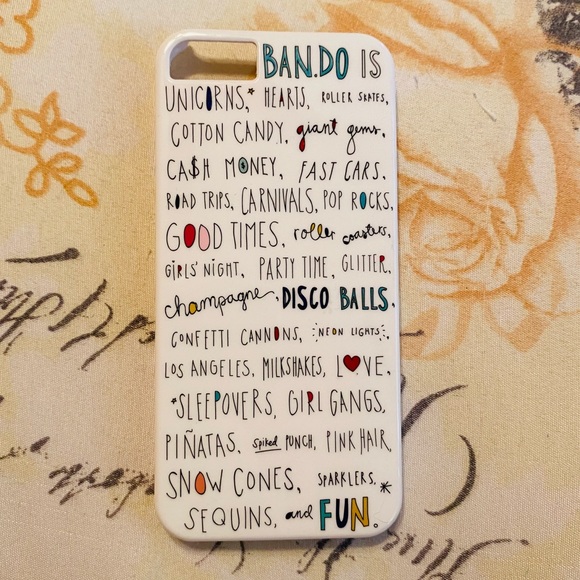 BAN.DO IS
UNICORNS,* HEARTS, ROLLER SKATES,
COTTON CANDY, giant gems,
CA$H MONEY, FAST CARS,
ROAD TRIPS, CARNIVALS, POP ROCKS,
GOOD TIMES, roller coasters,
GIRLS' NIGHT, PARTY TIME, GLITTER,
champagne, DISCO BALLS,
CONFETTI CANNONS, NEON LIGHTS,
LOS ANGELES, MILKSHAKES, L♥VE,
*SLEEPOVERS, GIRL GANGS,
PIÑATAS, spiked PUNCH, PINK HAIR,
SNOW CONES, SPARKLERS,*
SEQUINS, and FUN.